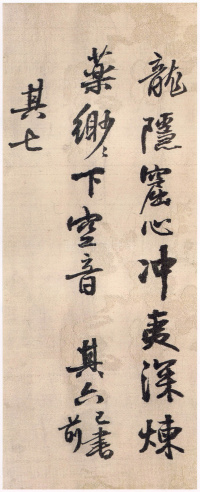 龍隱窟心冲爽深煉
藥緲〻下空音 其六已書前
其七